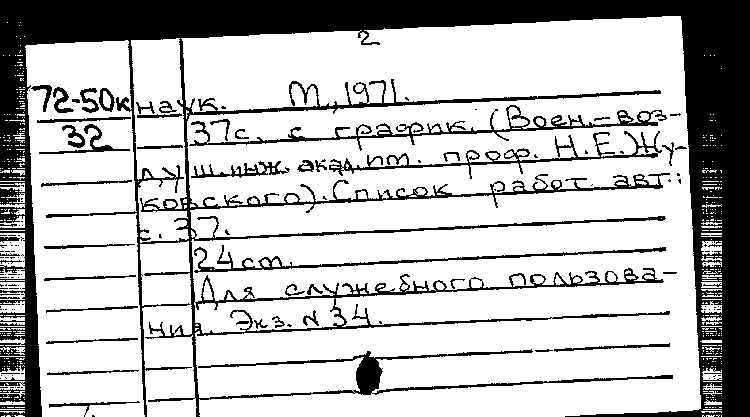 2
72-50к наук. М., 1971.
32 37с. с график. (Воен.-воз-
душ. инж. акад. им. проф. Н.Е.Жу-
ковского). Список работ авт.:
с. 37.
24 cm.
Для служебного пользова-
ния. Экз. N 34.